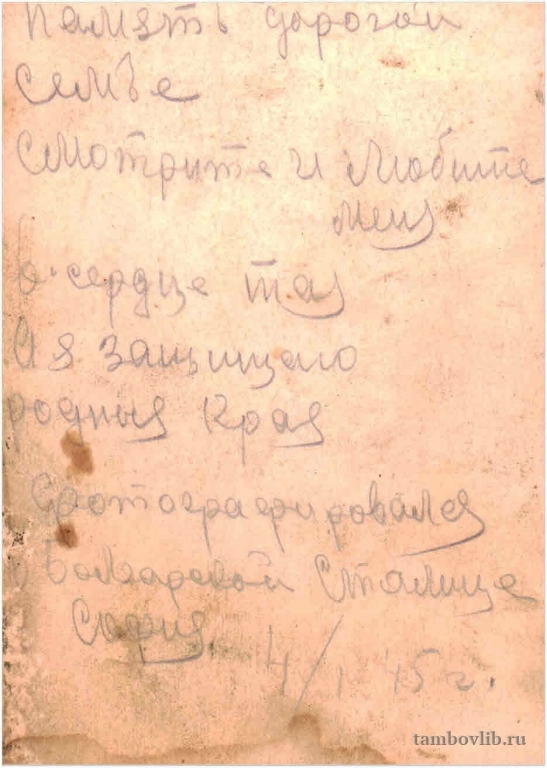 Память дорогой
семье
смотрите и любите
меня
в сердце тая
А я защищаю
родныя края
Сфотографировался
в Болгарской Сталице
София
4/I 45 г.
tambovlib.ru